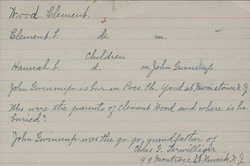 Wood, Clement.
Clement S. b. m.
Children
Hannah S. d. m John Guinnup
John Guinnup is bur in Pres Ch. Yard at N.J.
Who were the parents of Clement Wood and where is he
buried?
John Guinnup was the gr. gr. grandfather of
Chas. G. Terwilleger
49 Montrose St Newark N.J.